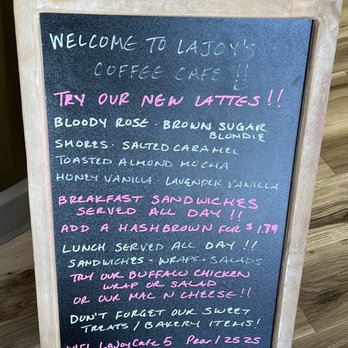 WELCOME TO LAJOY'S
COFFEE CAFE !!
TRY OUR NEW LATTES !!
BLOODY ROSE - BROWN SUGAR
BLONDIE
SMORES - SALTED CARAMEL
TOASTED ALMOND MOCHA
HONEY VANILLA - LAVENDER VANILLA
BREAKFAST SANDWICHES
SERVED ALL DAY !!
ADD A HASHBROWN FOR $1.79
LUNCH SERVED ALL DAY !!
SANDWICHES - WRAPS - SALADS
TRY OUR BUFFALO CHICKEN
WRAP OR SALAD
OR OUR MAC N CHEESE !!
DON'T FORGET OUR SWEET
TREATS / BAKERY ITEMS!
WIFI LAJOYCAFE 5